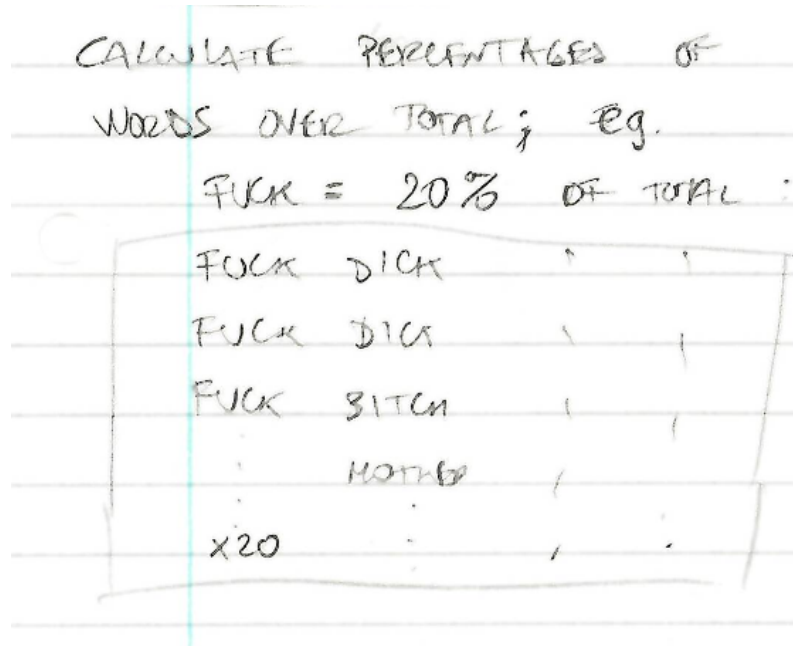 CALCULATE PERCENTAGES OF
WORDS OVER TOTAL; eg.
FUCK = 20% OF TOTAL :
FUCK DICK
FUCK DICK
FUCK BITCH
MOTHER
x20